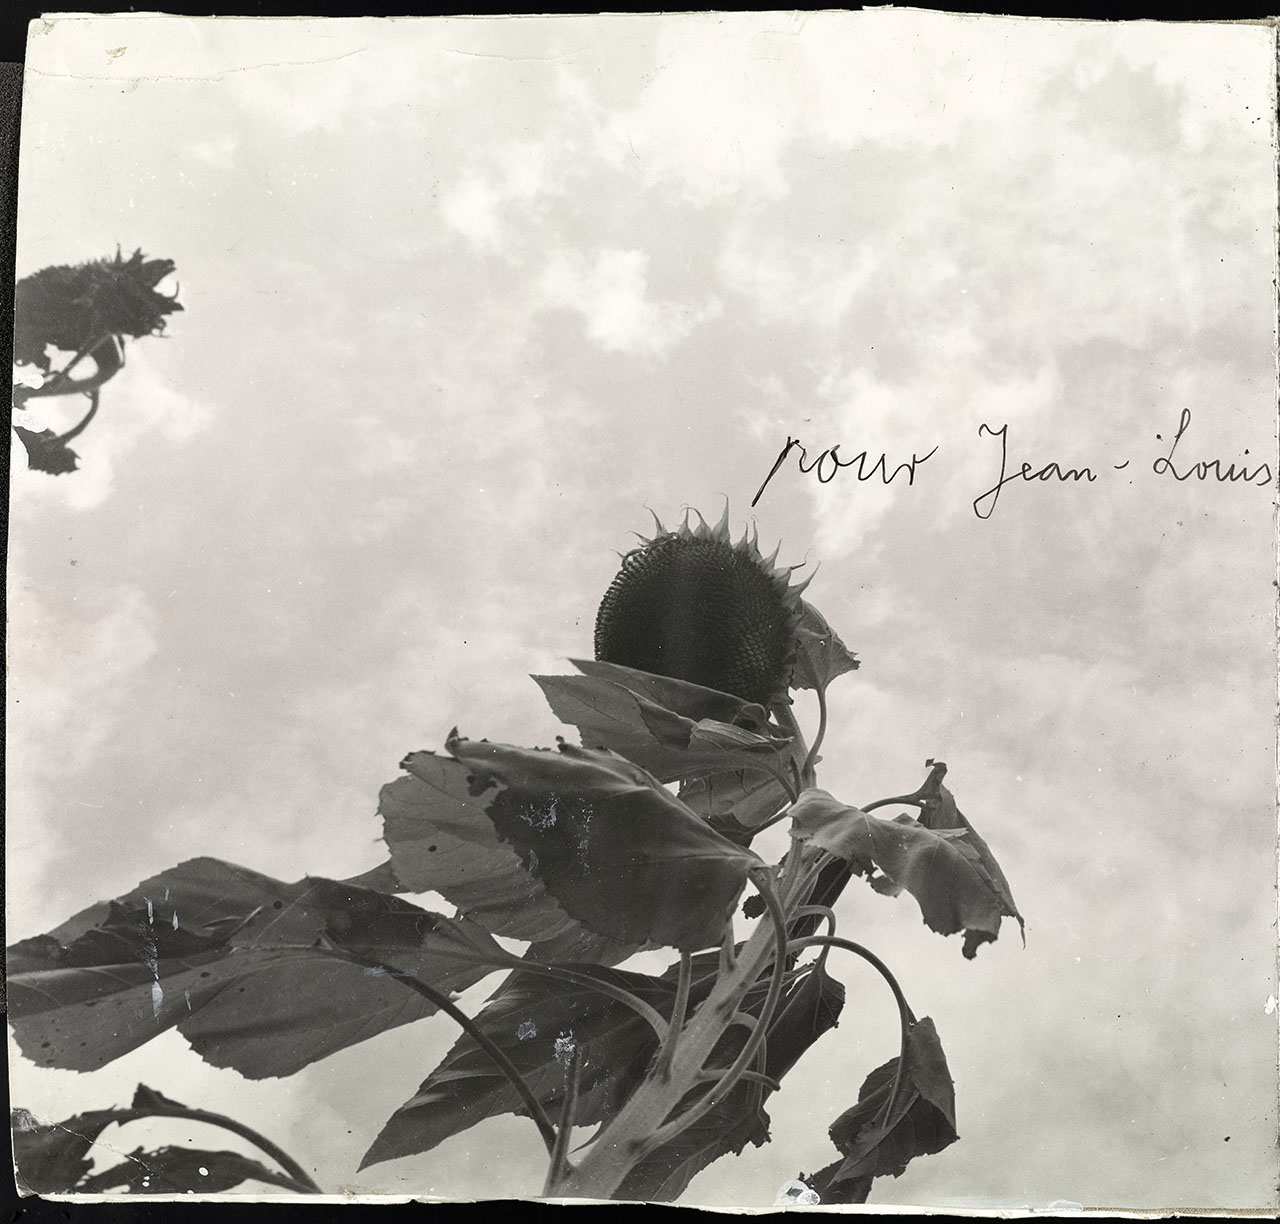 pour Jean-Louis